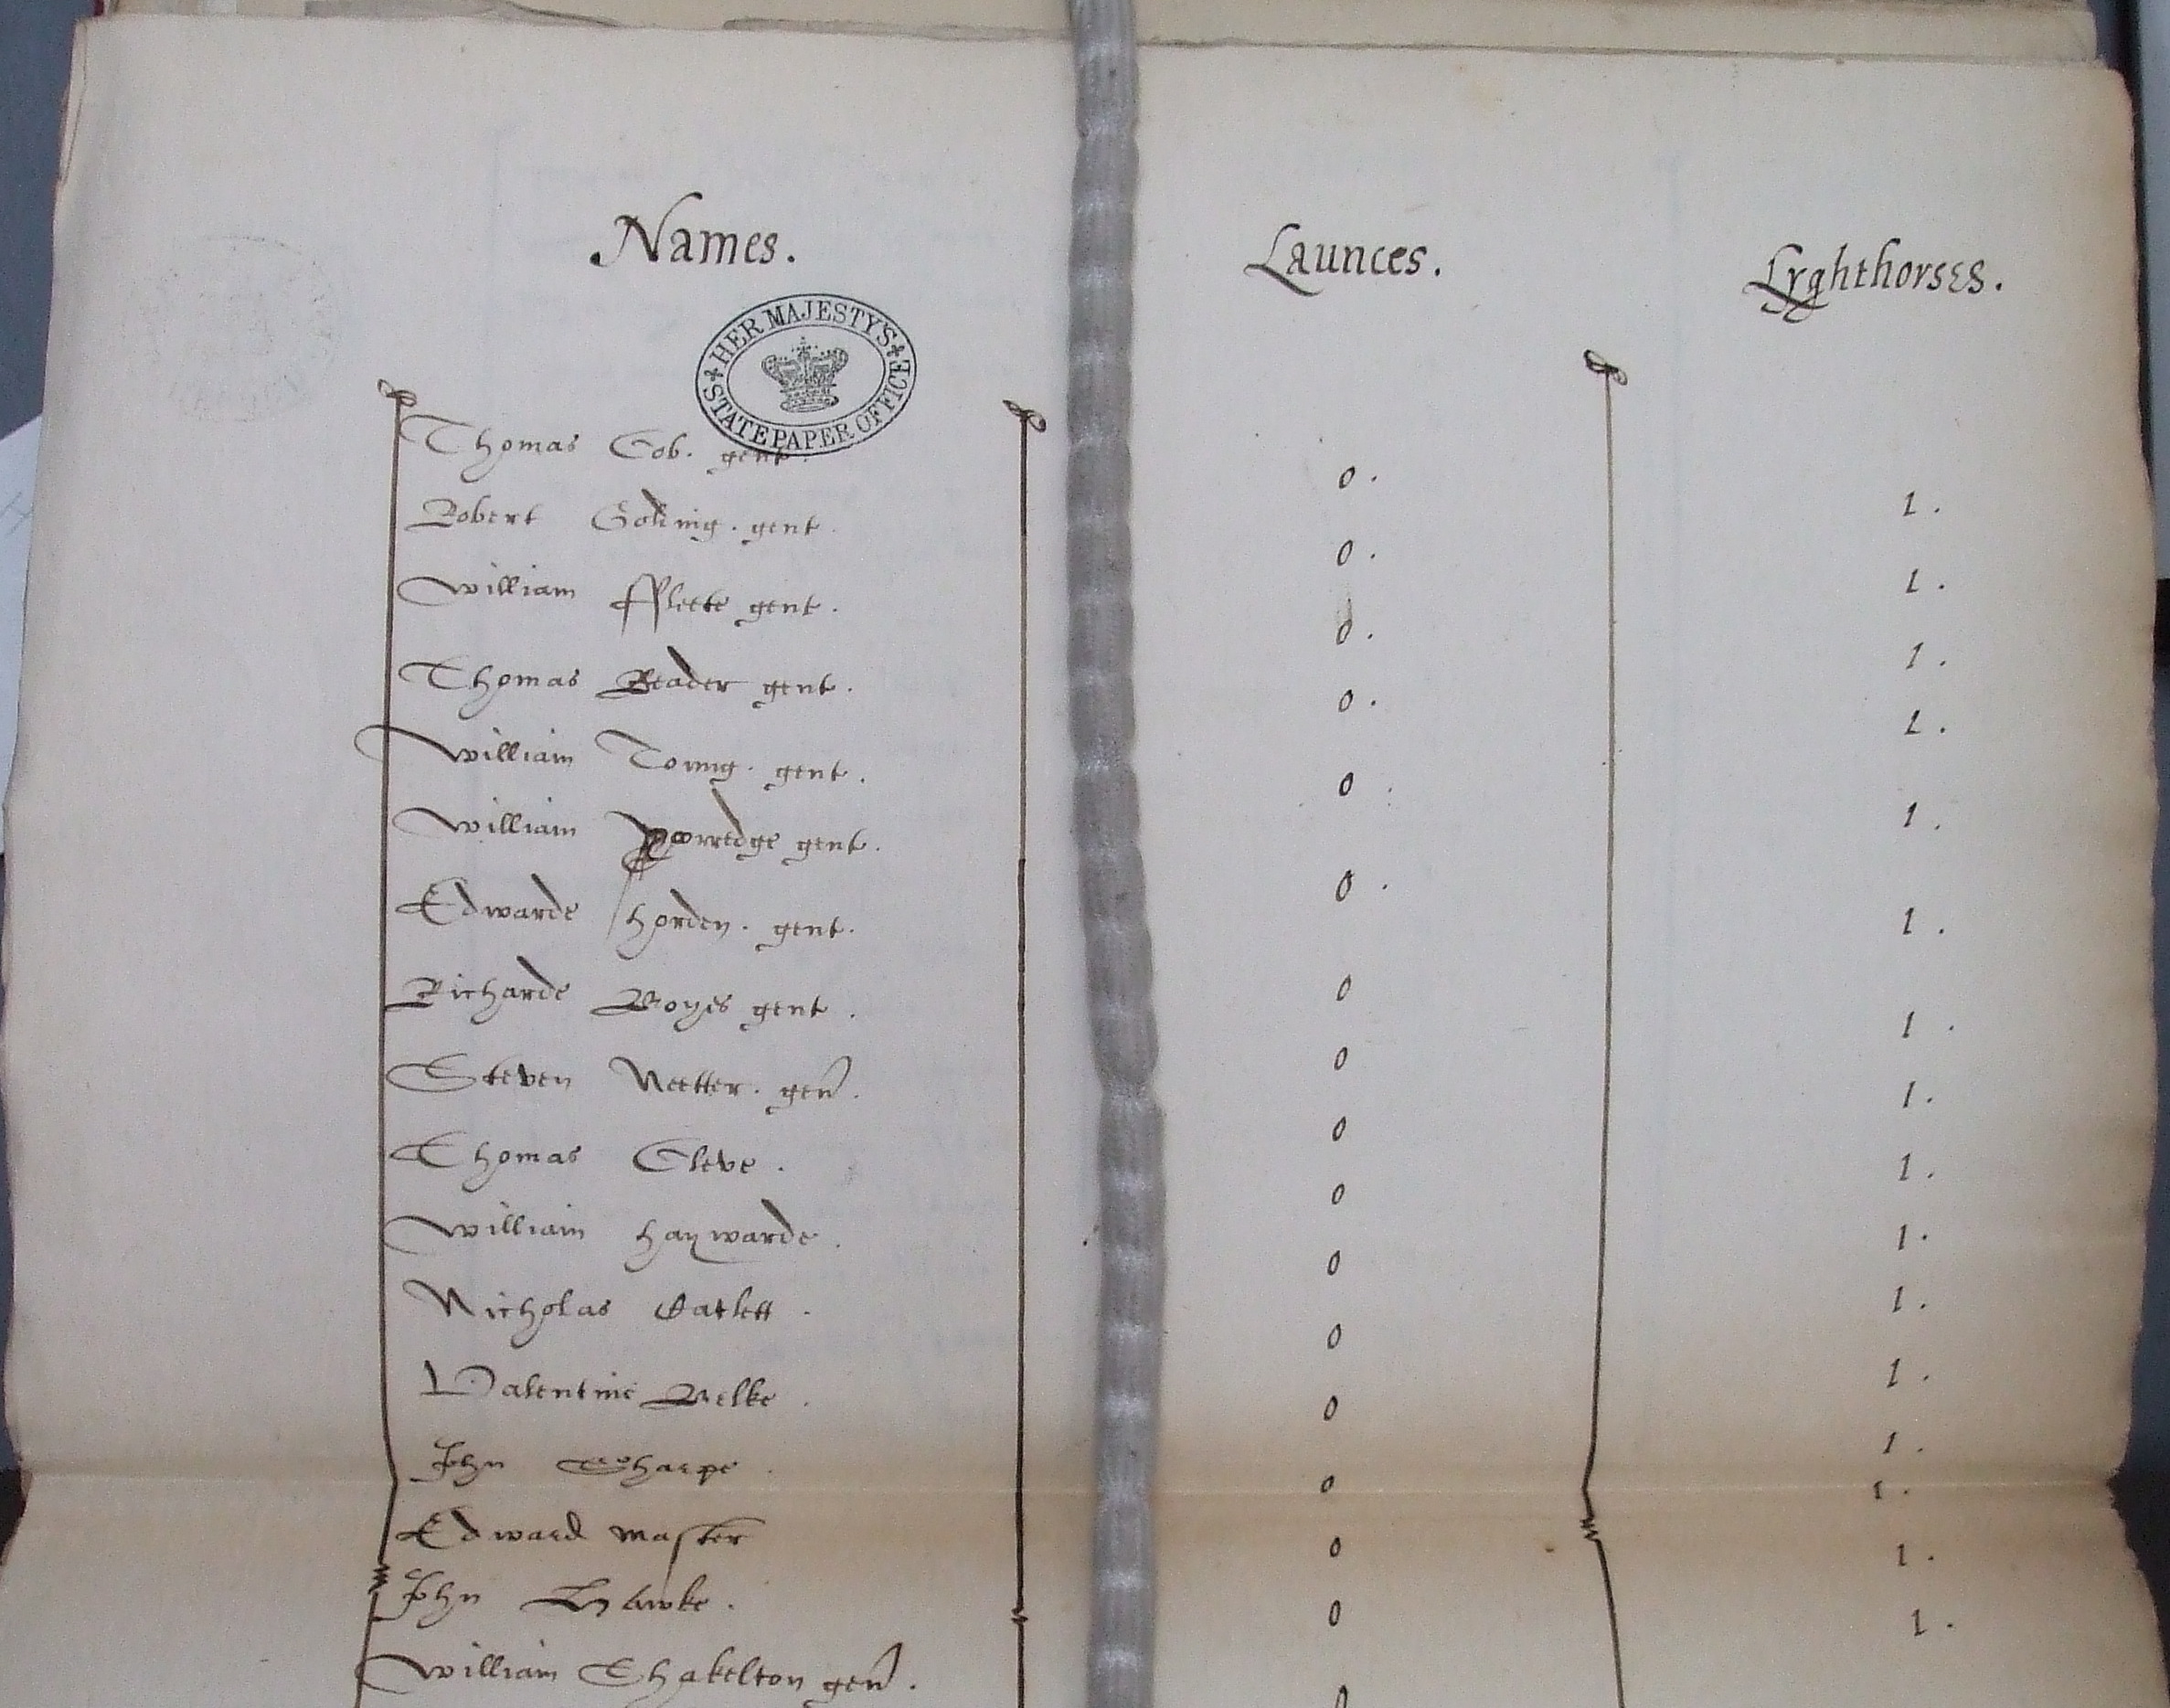 Names. Launces. Lyghthorses.
HER MAJESTY'S STATE PAPER OFFICE
Thomas Cob. gent. 0. 1.
Robert gent. 0. 1.
William fflette gent. 0. 1.
Thomas Reader gent. 0. 1.
William gent. 0. 1.
William Porredge gent. 0. 1.
Edwarde horden. gent. 0 1.
Richarde Boyes gent. 0 1.
Steven Netter. gen. 0 1.
Thomas Cleve. 0 1.
William haywarde. 0 1.
Nicholas 0 1.
Valentine 0 1.
John Sharpe. 0 1.
Edward master 0 1.
John Hawke. 0 1.
William Shakelton gen. 0